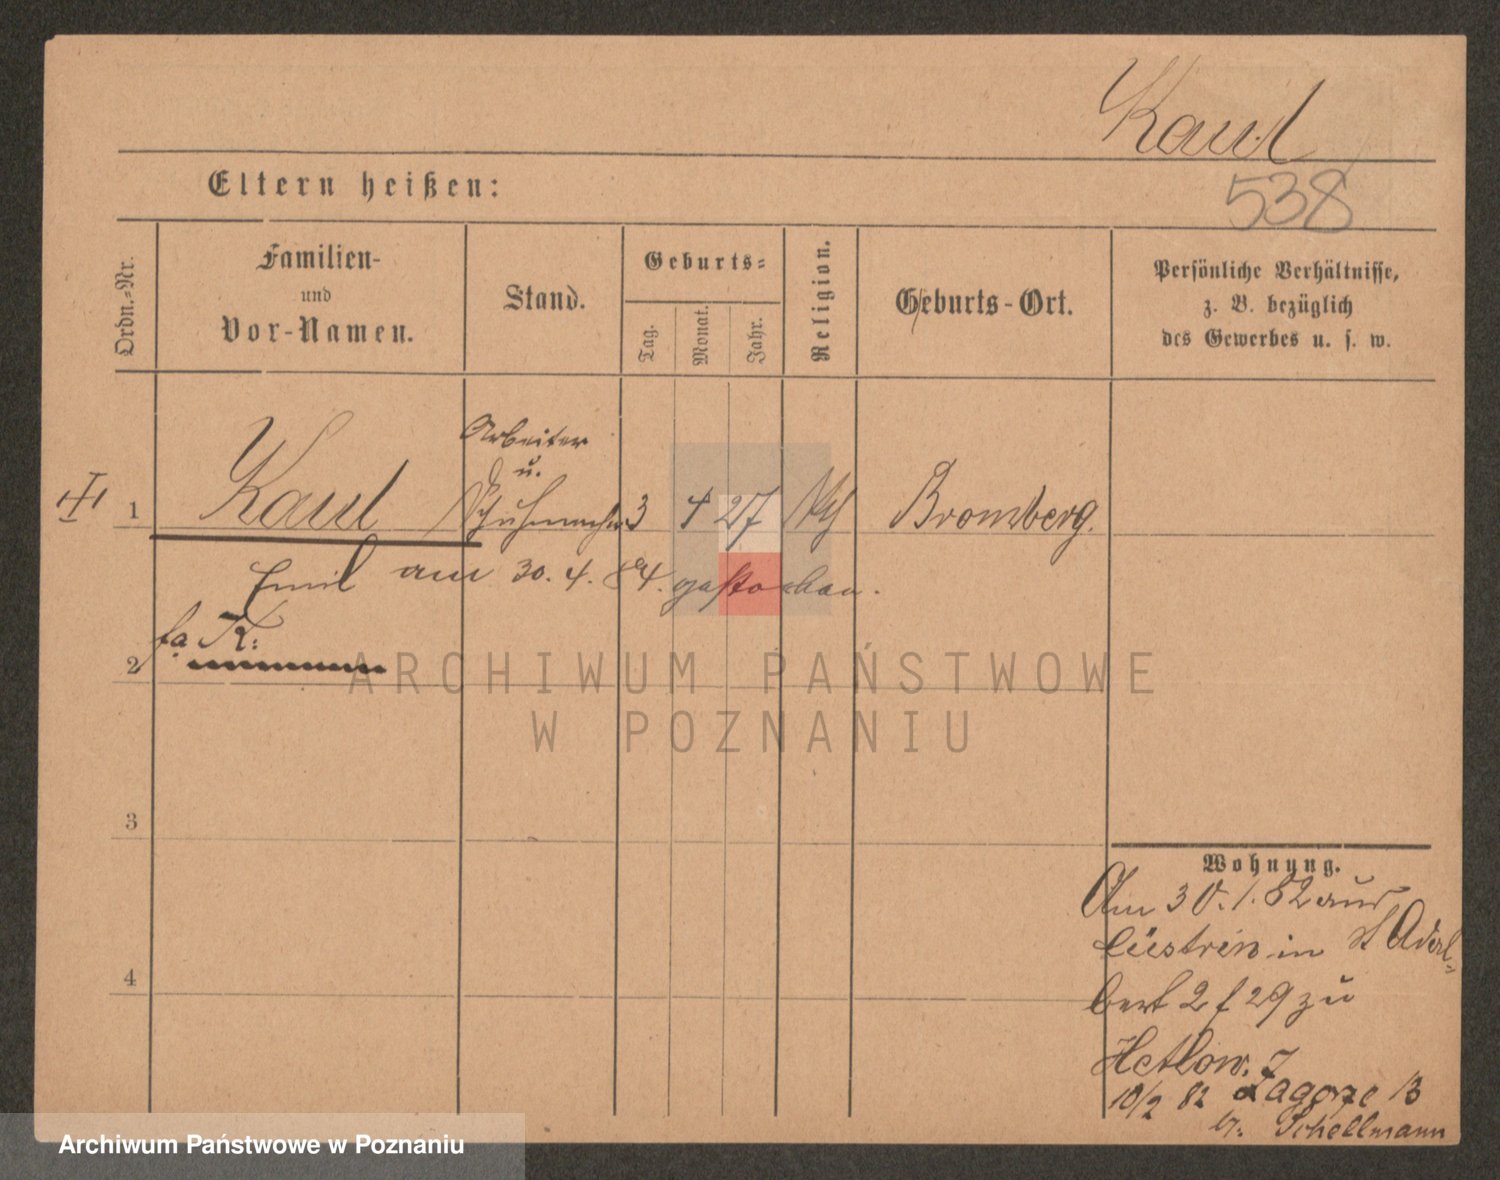 Kaul
538
Eltern heißen:
Ordn.-Nr.
Familien-
und
Vor-Namen.
Stand.
Geburts-
Tag.
Monat.
Jahr.
Religion.
Geburts-Ort.
Persönliche Verhältnisse,
z. B. bezüglich
des Gewerbes u. s. w.
1
Kaul
Arbeiter
u.
Schuhmacher
3
4
27
Bromberg.
Emil am 30. 4. 84. gestorben.
fa K:
2
ARCHIWUM PAŃSTWOWE
W POZNANIU
3
4
Wohnung.
Am 30. 1. 82 aus
Cüstrin in St Adal-
bert 2 f 29 zu
10/2 82 Zagorze 13
b. Schellmann
Archiwum Państwowe w Poznaniu